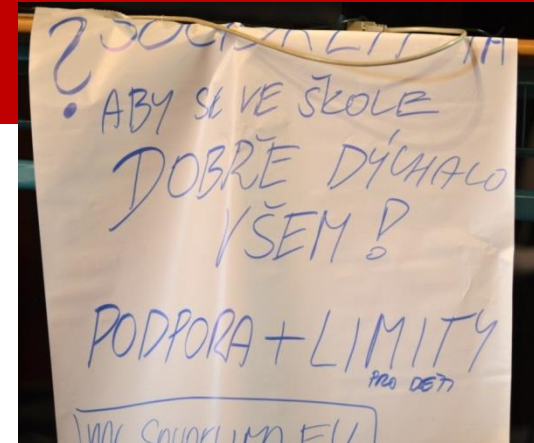 ?
ABY SE VE ŠKOLE
DOBŘE DÝCHALO
VŠEM!
PODPORA + LIMITY
PRO DĚTI